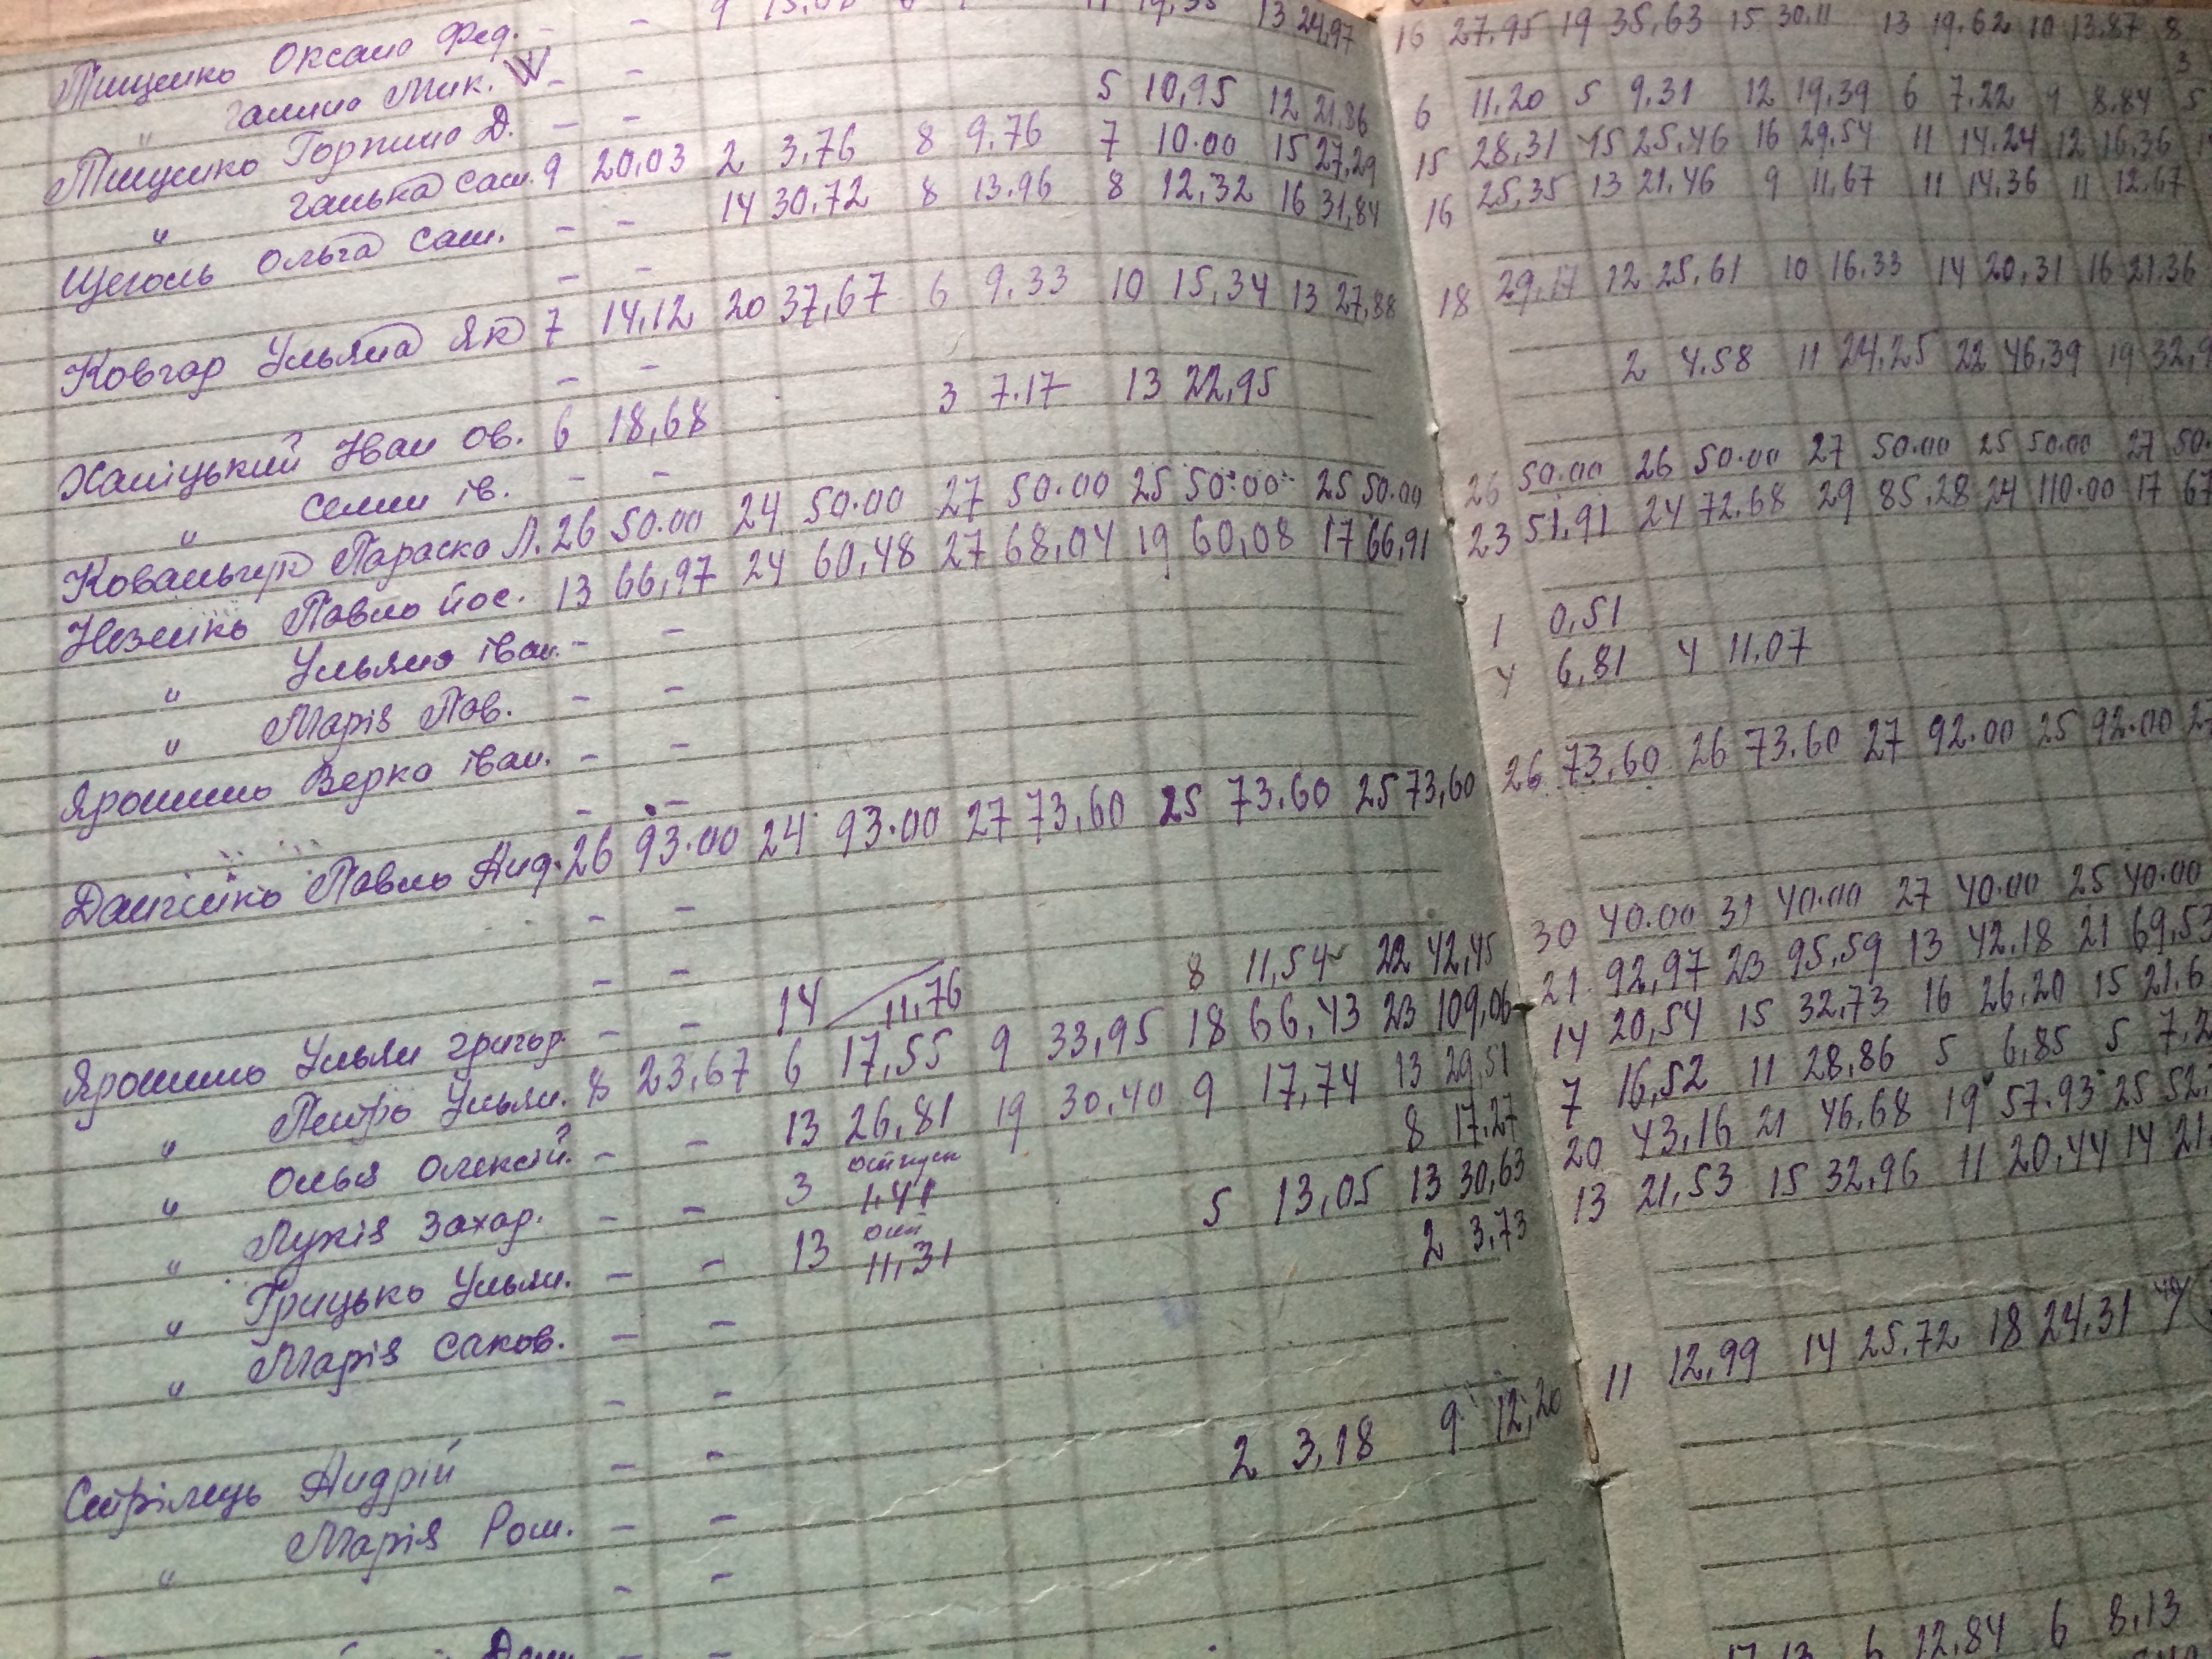 Тищенко Оксана Фед. - - 13 24,97 16 27,95 19 35,63 15 30,11 13 19,62 10 13,87 8
" Ганна Мик. - - 5 10,95 12 21,86 6 11.20 5 9.31 12 19,39 6 7.22 9 8.84 5
Тищенко Горпина Д. - - 2 3,76 8 9.76 7 10.00 15 27,29 15 28,31 15 25,46 16 29,54 11 14.24 12 16,36
" Ганька Сам. 9 20,03 14 30,72 8 13.96 8 12,32 16 31,84 16 25,35 13 21,46 9 11,67 11 14,36 11 12,67
Щеголь Ольга Сам. - -
Ковгар Ульяна Як 7 14,12 20 37,67 6 9.33 10 15,34 13 27,88 18 29,17 12 25,61 10 16.33 14 20,31 16 21,36
Іван Ов. 6 18,68 3 7.17 13 22,95 2 4.58 11 24,25 22 46,39 19
" Семен Ів. - -
Ковальчук Параска Л. 26 50.00 24 50.00 27 50.00 25 50.00 25 50.00 26 50.00 26 50.00 27 50.00 25 50.00 27
Павло Йос. 13 66,97 24 60,48 27 68,04 19 60,08 17 66,91 23 51,91 24 72.68 29 85,28 24 110.00 17
" Ульяна Іван. - - 1 0,51
" Марія Пав. - - 4 6,81 4 11.07
Ярошенко Верка Іван. - -
Павло Анд. 26 93.00 24 93.00 27 73,60 25 73.60 25 73,60 26 73,60 26 73.60 27 92.00 25 92.00
- - 30 40.00 31 40.00 27 40.00 25 40.00
Ярошенко Ульян Григор. - - 14 11,76 8 11,54 22 42,45 21 92,97 23 95,59 13 42,18 21 69,53
" Петро Ульян. 8 23,67 6 17,55 9 33,95 18 66,43 23 109,06 14 20,54 15 32,73 16 26,20 15
" Олексій. - - 13 26,81 19 30,40 9 17,74 13 29,51 7 16,52 11 28,86 5 6,85 5
" Лукія Захар. - - 3 1,41 8 17,27 20 43,16 21 46,68 19 57.93 25
" Грицько Ульян. - - 13 11,31 5 13,05 13 30,63 13 21,53 15 32,96 11 20,44 14
" Марія Саков. - - 2 3,73
Стрілець Андрій - - 2 3,18 9 12,20 11 12,99 14 25,72 18 24,31
" Марія Ром. - -
6 12,84 6 8,13